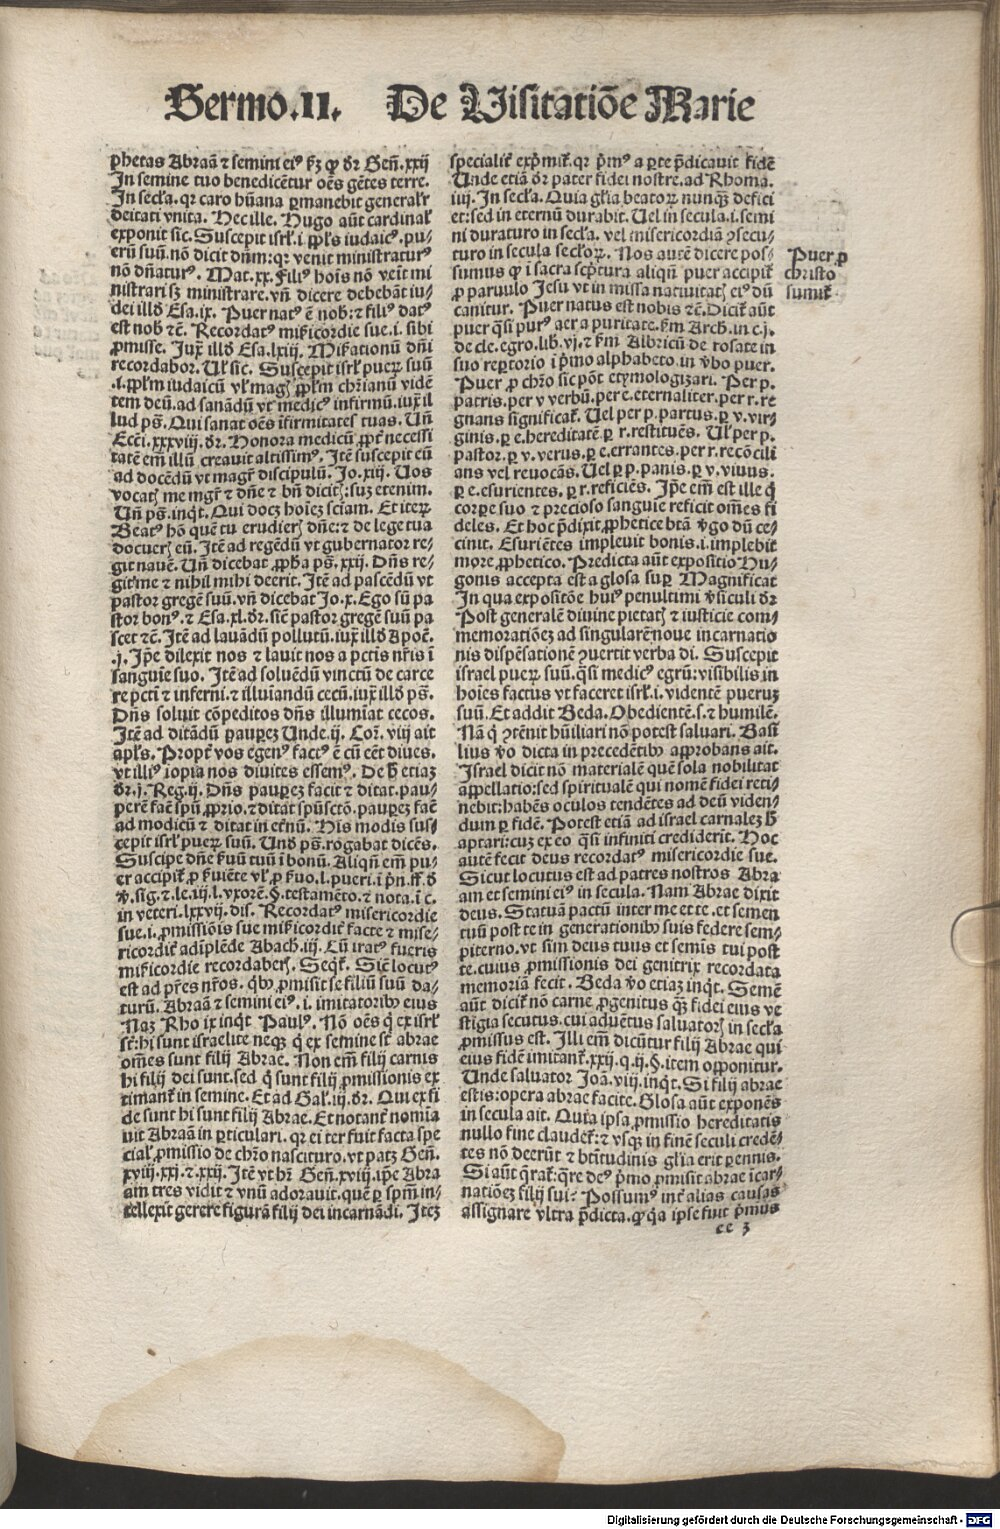 Sermo.II. De Uisitatiōe Marie
phetas Abraā ⁊ semini eiꝰ ẜꝫ ꝙ dr̄ Geñ.xxij
In semine tuo benedicētur oēs gētes terre.
In secła. qꝛ caro hūana ꝑmanebit generalr̄
deitati vnita. Hec ille. Hugo aūt cardinał
exponit sic. Suscepit isrł.i. ꝑpłs iudaicꝰ. pu-
erū suū. nō dicit dñm: qꝛ venit ministraturꝰ
nō dñaturꝰ. Mat.xx. Filiꝰ hoīs nō veīt mi
nistrari sꝫ ministrare. vñ dicere debebāt iu-
dei illđ Esa.ix. Puer natꝰ ē nob: ⁊ filiꝰ datꝰ
est nob ⁊ē. Recordatꝰ mīẜicordie sue.i. sibi
ꝓmisse. Juꝝ illđ Esa.lxiij. Mīẜationū dñi
recordabor. Uł sic. Suscepit isrł pueꝝ suū
.i. ꝓpłm iudaicū vł magꝭ ꝓpłm chr̄ianū vidē
tem deū. ad sanādū vt medicꝰ infirmū. iux̄ il
lud ps̄. Qui sanat oēs īfirmitates tuas. Uñ
Ecc̄i.xxxviij. dr̄. Honora medicū ꝓpt̄ necessi
tatē em̄ illū creauit altissimꝰ. Itē suscepit eū
ad docēdū vt magr̄ discipulū. Jo.xiij. Uos
vocatꝭ me mgr̄ ⁊ dñe ⁊ bñ dicitꝭ: suꝫ etenim.
Uñ ps̄. inqt. Qui docꝫ hoīeꝫ sc̄iam. Et iteꝝ
Beatꝰ hō quē tu erudierꝭ dñe: ⁊ de lege tua
docuerꝭ eū. Itē ad regēdū vt gubernator re-
git nauē. Uñ dicebat ꝓpħa ps̄.xxij. Dñs re-
git me ⁊ nihil mihi deerit. Itē ad pascēdū vt
pastor gregē suū. vñ dicebat Jo.x. Ego sū pa
stor bonꝰ. ⁊ Esa.xl. dr̄. sic̄ pastor gregē suū pa
scet ⁊ē. Itē ad lauādū pollutū. iux̄ illđ Apoc̄.
.j. Ip̄e dilexit nos ⁊ lauit nos a pctis nr̄is ī
sanguīe suo. Itē ad soluēdū vinctū de carce
re pcti ⁊ inferni. ⁊ illuīandū cecū. iux̄ illđ ps̄.
Dñs soluit cōpeditos dñs illumīat cecos.
Itē ad ditādū pauꝑeꝫ Unde.ij. Cor̄.viij ait
apłs. Propt̄ vos egenꝰ factꝰ ē cū eēt diues.
vt illiꝰ īopia nos diuites essemꝰ. De ħ etiaꝫ
dr̄.j. Reg.ij. Dñs paupeꝫ facit ⁊ ditat. pau-
perē fac̄ spū ꝓprio. ⁊ ditat spūsctō. pauꝑeꝫ fac̄
ad modicū ⁊ ditat in et̄nū. His modis sus-
cepit isrł pueꝝ suū. Unđ ps̄. rogabat dicēs.
Suscipe dñe ẜuū tuū ī bonū. Aliqñ em̄ pu-
er accipit̄ ꝓ ẜuiēte vł ꝓ ẜuo. l. pueri. i pñ. ff. đ
ꝟ. sig. ⁊. le. iij. l. vxorē. §. testamēto. ⁊ nota. ī c.
in veteri. lxxvij. dis. Recordatꝰ misericordie
sue.i. ꝓmissiōis sue mīẜicordit̄ facte ⁊ mise-
ricordit̄ adīplēde Abach.iij. Cū iratꝰ fueris
mīẜicordie recordaberꝭ. Seqt̄. Sic̄ locutꝰ
est ad pr̄es nr̄os. qbꝰ ꝓmisit se filiū suū da-
turū. Abraā ⁊ semini eiꝰ.i. imitatoribꝰ eius
Naꝫ Rho ix inqt Paulꝰ. Nō oēs q̇ ex isrł
st̄: hi sunt israelite neqꝫ q̇ ex semine st̄ abrae
om̄es sunt filij Abrae. Non em̄ filij carnis
hi filij dei sunt. sed q̇ sunt filij ꝓmissionis ex
timant̄ in semine. Et ad Gał.iij. dr̄. Qui ex fi
de sunt hi sunt filij Abrae. Et notant̄ nomīa
uit Abraā in ꝑticulari. qꝛ ei ter fuit facta spe
ciał ꝓmissio de chr̄o nascituro. vt patꝫ Geñ.
xviij. xxj. ⁊ xxij. Itē vt hr̄ Geñ.xviij. ip̄e Abra
am tres vidit ⁊ vnū adorauit. quē ꝑ spm̄ in-
tellexit gerere figurā filij dei incarnādi. Iteꝫ
specialit̄ exp̄mit̄. qꝛ p̄mꝰ a ꝑte p̄dicauit fidē
Unde etiā dr̄ pater fidei nostre. ad Rhoma.
iiij. In secła. Quia głia beatoꝝ nunqꝫ defici
et: sed in eternū durabit. Uel in secula.i. semi
ni duraturo in secła. vel misericordiā ꝯsecu-
turo in secula secłoꝝ. Nos autē dicere pos-
sumus ꝙ ī sacra scp̄tura aliqñ puer accipit̄
ꝓ paruulo Jesu vt in missa natiuitatꝭ eiꝰ dū
canitur. Puer natus est nobis ⁊ē. Dicit̄ aūt
puer q̄si purꝰ aer a puritate. ẜm Arch. in c.j.
de cle. egro. lib. vj. ⁊ ẜm Albricū de rosate in
suo repertorio ī p̄mo alphabeto. in ꝟbo puer.
Puer ꝓ chr̄o sic pōt etymologizari. Per p.
patris. per v verbū. per e. eternaliter. per r. re
gnans significat̄. Uel per p. partus. ꝑ v. vir-
ginis. ꝑ e. hereditatē ꝑ r. restituēs. Uł per p.
pastor. ꝑ v. verus. ꝑ e. errantes. per r. recōcili
ans vel reuocās. Uel ꝑ p. panis. ꝑ v. viuus.
ꝑ e. esurientes. ꝑ r. reficiēs. Ip̄e em̄ est ille q̇
corꝑe suo ⁊ precioso sanguīe reficit om̄es fi
deles. Et hoc p̄dixit ꝓphetice btā ꝟgo dū ce-
cinit. Esuriētes impleuit bonis.i. implebit
more ꝓphetico. Predicta aūt expositio Hu-
gonis accepta est a glosa suꝑ Magnificat
In qua expositōe huiꝰ penultimi ꝟsiculi dr̄
Post generalē diuine pietatꝭ ⁊ iusticie com-
memoratiōeꝫ ad singularē noue incarnatio
nis dispēsationē ꝯuertit verba di. Suscepit
israel pueꝝ suū. q̄si medicꝰ egrū: visibilis in
hoīes factus vt faceret isrł.i. videntē pueruꝫ
suū. Et addit Beda. Obedientē.s. ⁊ humilē.
Nā q̇ ꝯtēnit hūiliari nō potest saluari. Basi
lius ꝟo dicta in precedētibꝰ aꝓbans ait.
Israel dicit nō materialē quē sola nobilitat
appellatio: sed spiritualē qui nomē fidei reti-
nebit: habēs oculos tendētes ad deū viden-
dum ꝑ fidē. Potest etiā ad israel carnaleꝫ ħ
aptari: cuꝫ ex eo q̄si infiniti crediderīt. Hoc
autē fecit deus recordatꝰ misericordie sue.
Sicut locutus est ad patres nostros Abra
am et semini eiꝰ in secula. Nam Abrae dixit
deus. Statuā pactū inter me et te. et semen
tuū post te in generationibꝰ suis federe sem-
piterno. vt sim deus tuus et semīs tui post
te. cuius ꝓmissionis dei genitrix recordata
memoriā fecit. Beda ꝟo etiaꝫ inqt. Semē
aūt dicit̄ nō carne ꝓgenitus qꝫ fidei eius ve
stigia secutus. cui aduētus saluatorꝭ in secła
ꝓmissus est. Illi em̄ dicūtur filij Abrae qui
eius fidē imitant̄. xxij. q. ij. §. item opponitur.
Unde saluator Joā.viij. inqt. Si filij abrae
estis: opera abrae facite. Glosa aūt exponēs
in secula ait. Quia ipsa ꝓmissio hereditatis
nullo fine claudet̄: ⁊ vsqꝫ in finē seculi credē-
tes nō deerūt ⁊ btītudinis głia erit ꝑennis.
Si aūt q̄rat̄: q̄re deꝰ p̄mo ꝓmisit abrae īcar-
natiōeꝫ filij sui? Possumꝰ int̄ alias causas
assignare vltra p̄dicta. ꝙ q̇a ipse fuit p̄mus
cc 3
Puer ꝓ
christo
sumit̄
Digitalisierung gefördert durch die Deutsche Forschungsgemeinschaft - DFG